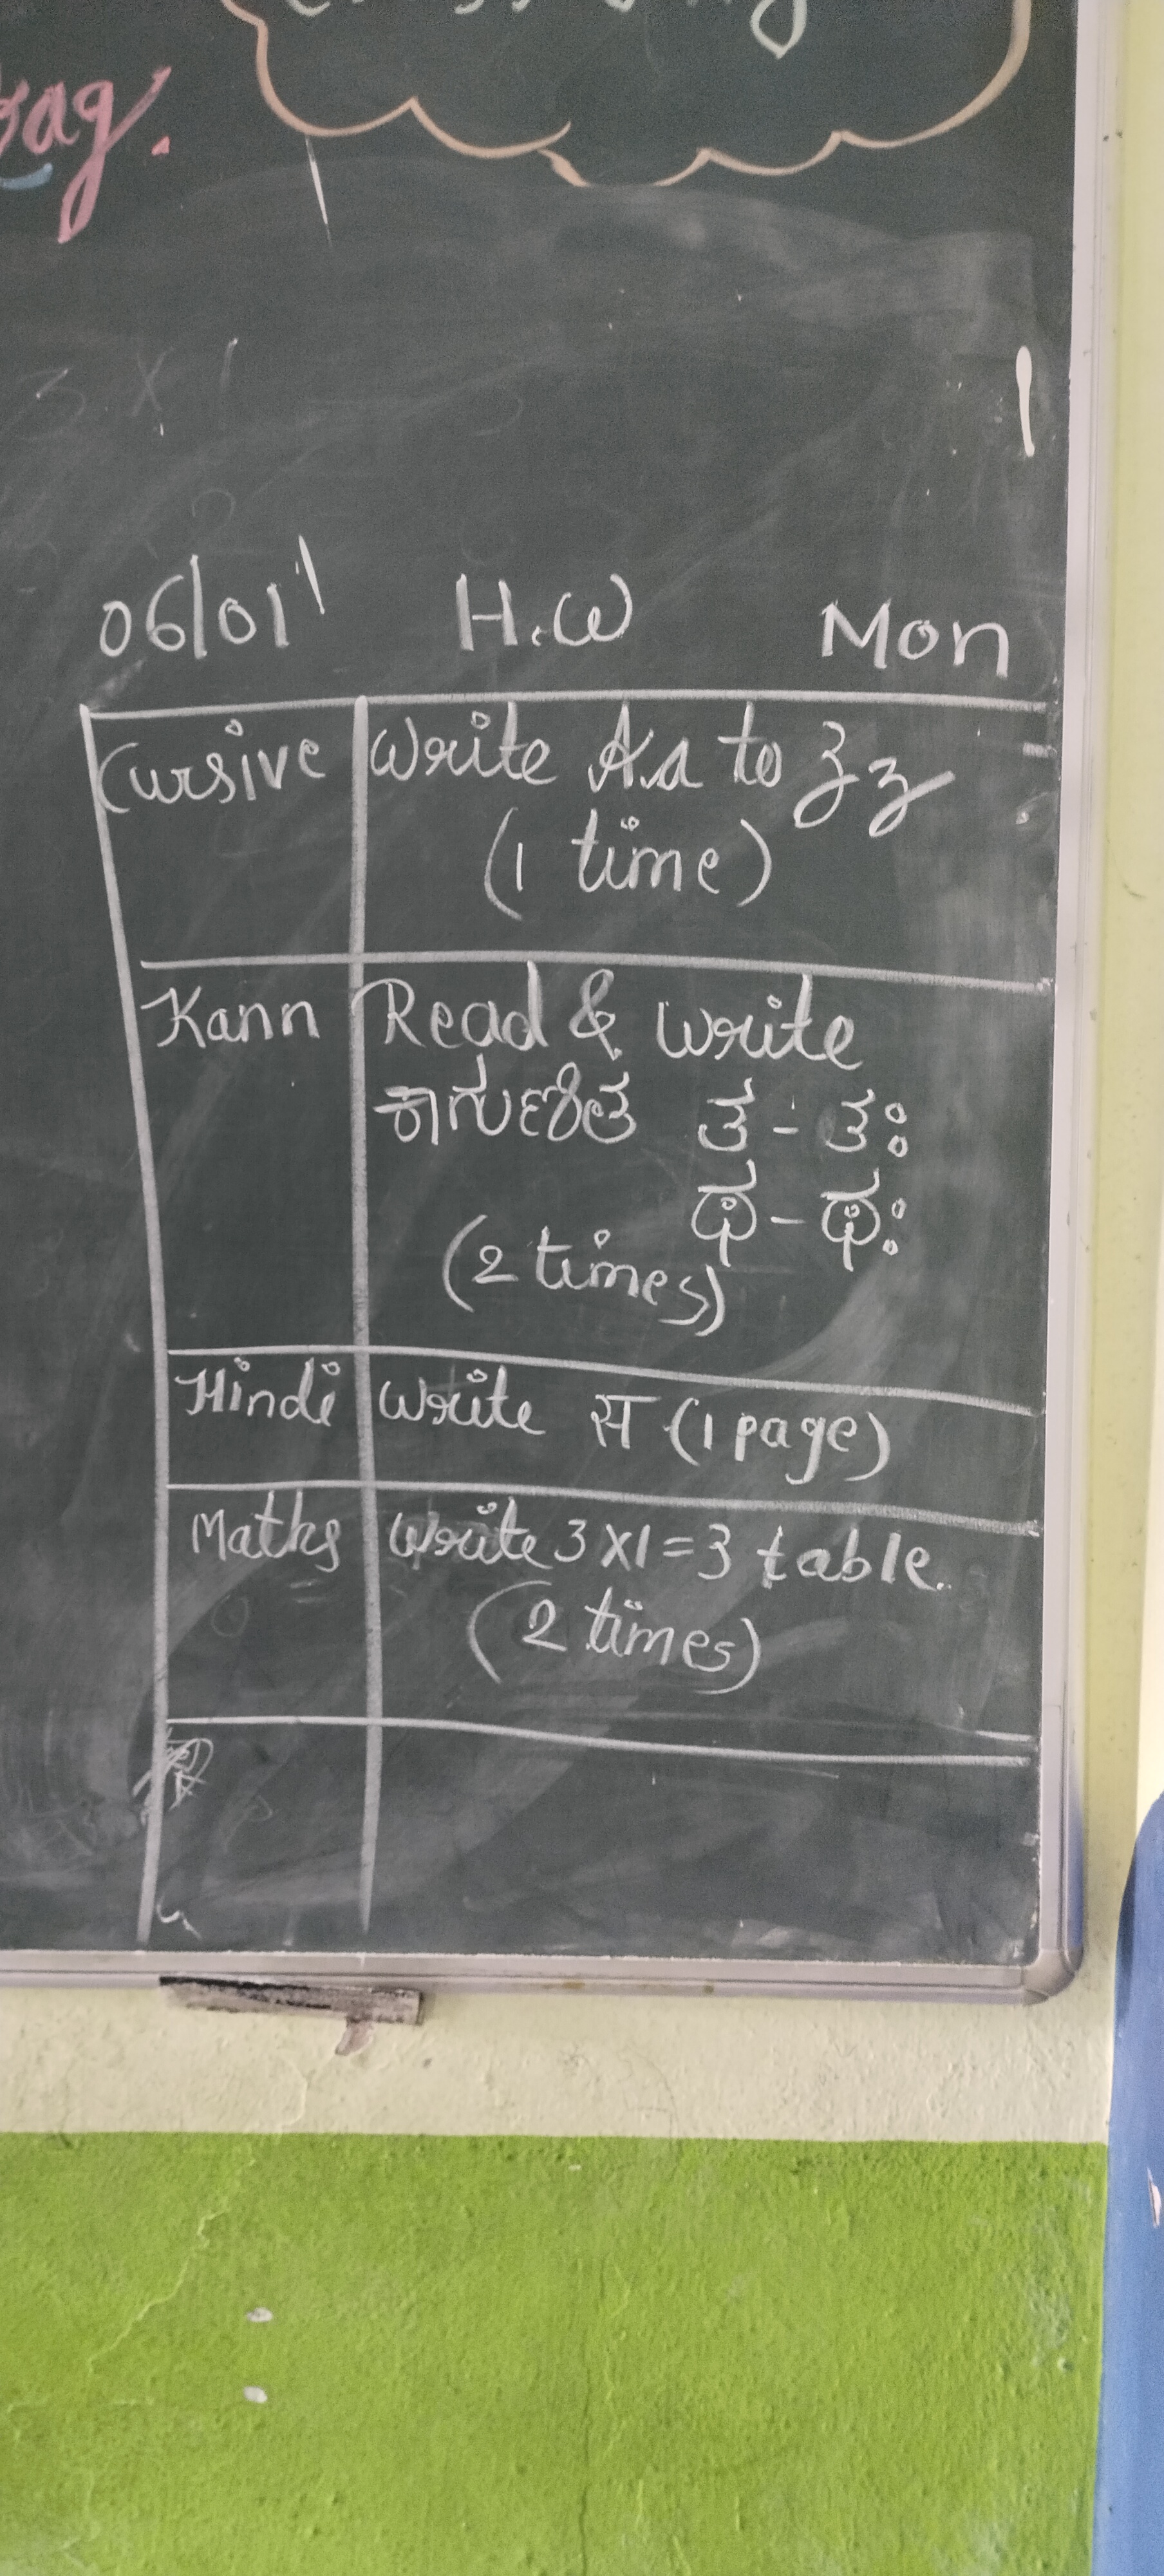 06/01 H.W Mon
Cursive Write Aa to Zz
(1 time)
Kann Read & write
ಕಾಗುಣಿತ ತ - ತಃ
ಥ - ಥಃ
(2 times)
Hindi Write स (1 page)
Maths Write 3x1=3 table.
(2 times)